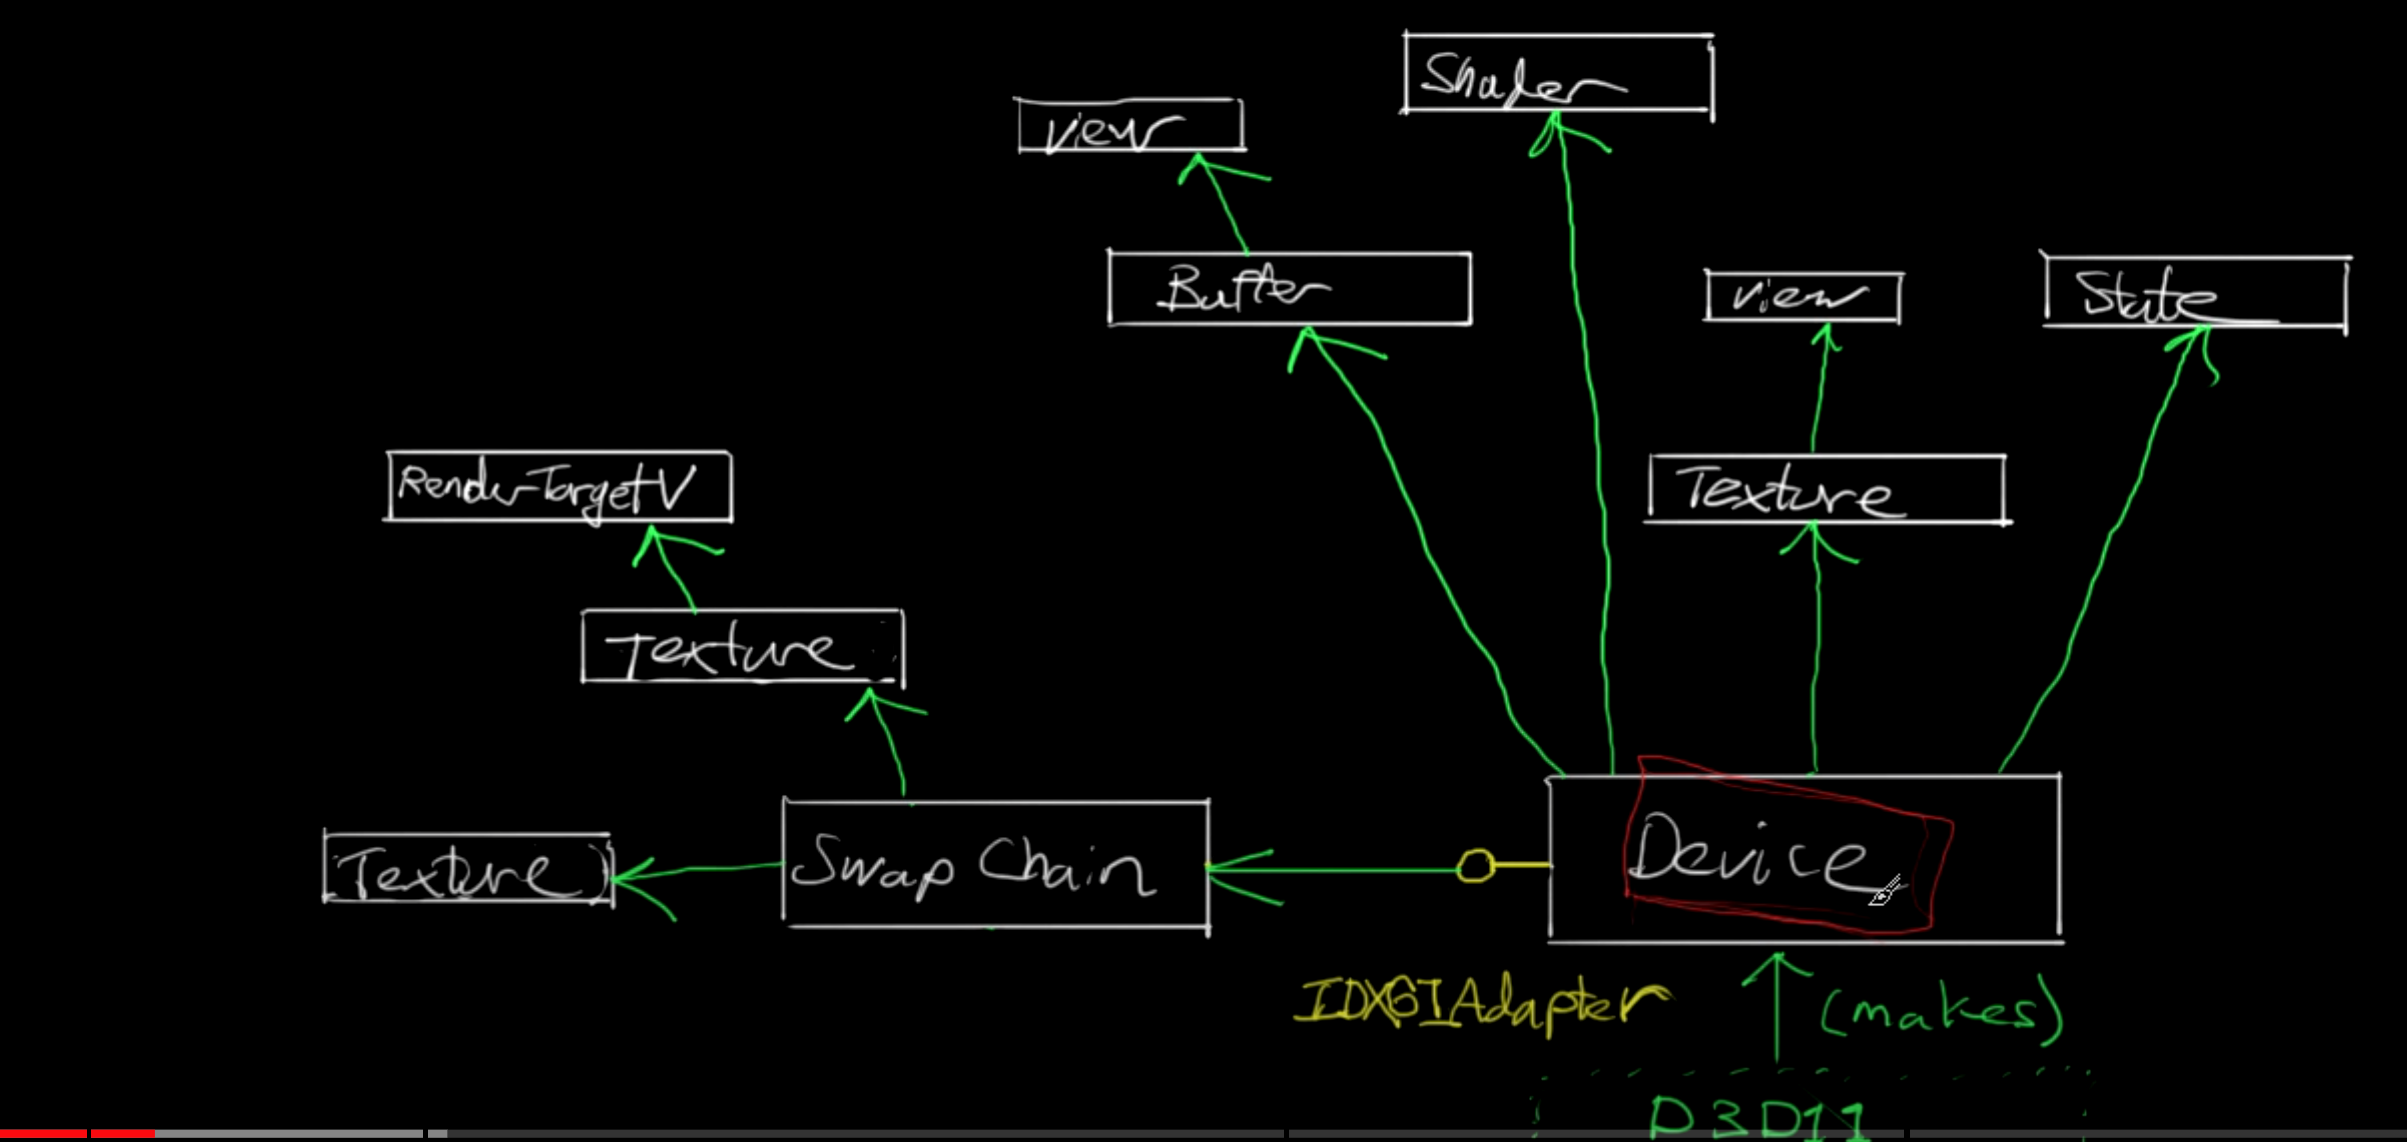 Shader
View
Buffer
View
State
Render-TargetV
Texture
Texture
Texture
Swap Chain
Device
IDXGIAdapter
(makes)
D3D11